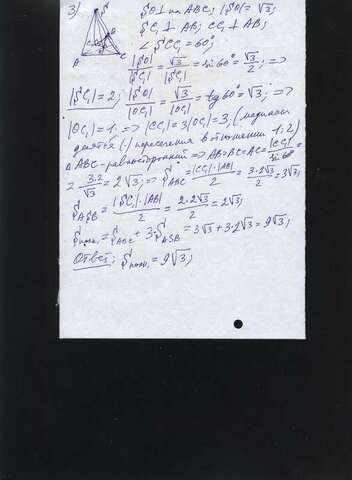 3) SO ⊥ на ABC; |SO| = √3;
SC₁ ⊥ AB; CC₁ ⊥ AB;
∠ SCC₁ = 60°;
|SO|/|SC₁| = √3/|SC₁| = sin 60° = √3/2; =>
|SC₁| = 2; |SO|/|OC₁| = √3/|OC₁| = tg 60° = √3; =>
|OC₁| = 1; => |CC₁| = 3|OC₁| = 3; (медианы
делятся (·) пересечения в отношении 1:2)
△ABC - равносторонний => AB=BC=AC = |CC₁|/sin 60° =
= 3·2/√3 = 2√3; => S_ABC = |CC₁|·|AB|/2 = 3·2√3/2 = 3√3;
S_ASB = |SC₁|·|AB|/2 = 2·2√3/2 = 2√3;
S_полн. = S_ABC + 3·S_ASB = 3√3 + 3·2√3 = 9√3;
Ответ: S_полн. = 9√3;
S
B
A
C